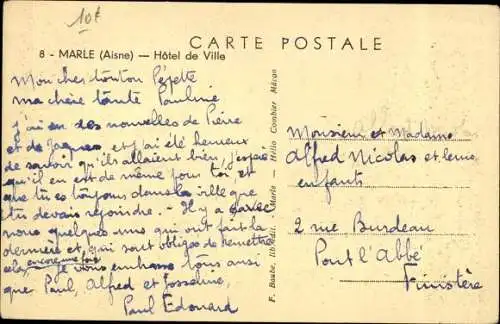 10f
CARTE POSTALE
8 - MARLE (Aisne) — Hôtel de Ville
Mon cher tonton Pépette
ma chère tante Pauline
J'ai eu des nouvelles de Pierre
et de Jacques et j'ai été heureux
de savoir qu'ils allaient bien, j'espère
qu'il en est de même pour toi et
que tu es toujours dans la ville que
tu devais rejoindre. - Il y a avec
nous quelques uns qui ont fait la
dernière et, qui sont obligés de remettre
cela encore une fois Je vous embrasse tous ainsi
que Paul, Alfred et Josseline,
Paul Edouard
F. Baube, Édit. Marle — Hélio Combier Mâcon
Monsieur et Madame
Alfred Nicolas et leurs
enfants
2 rue Burdeau
Pont l'Abbé
Finistère